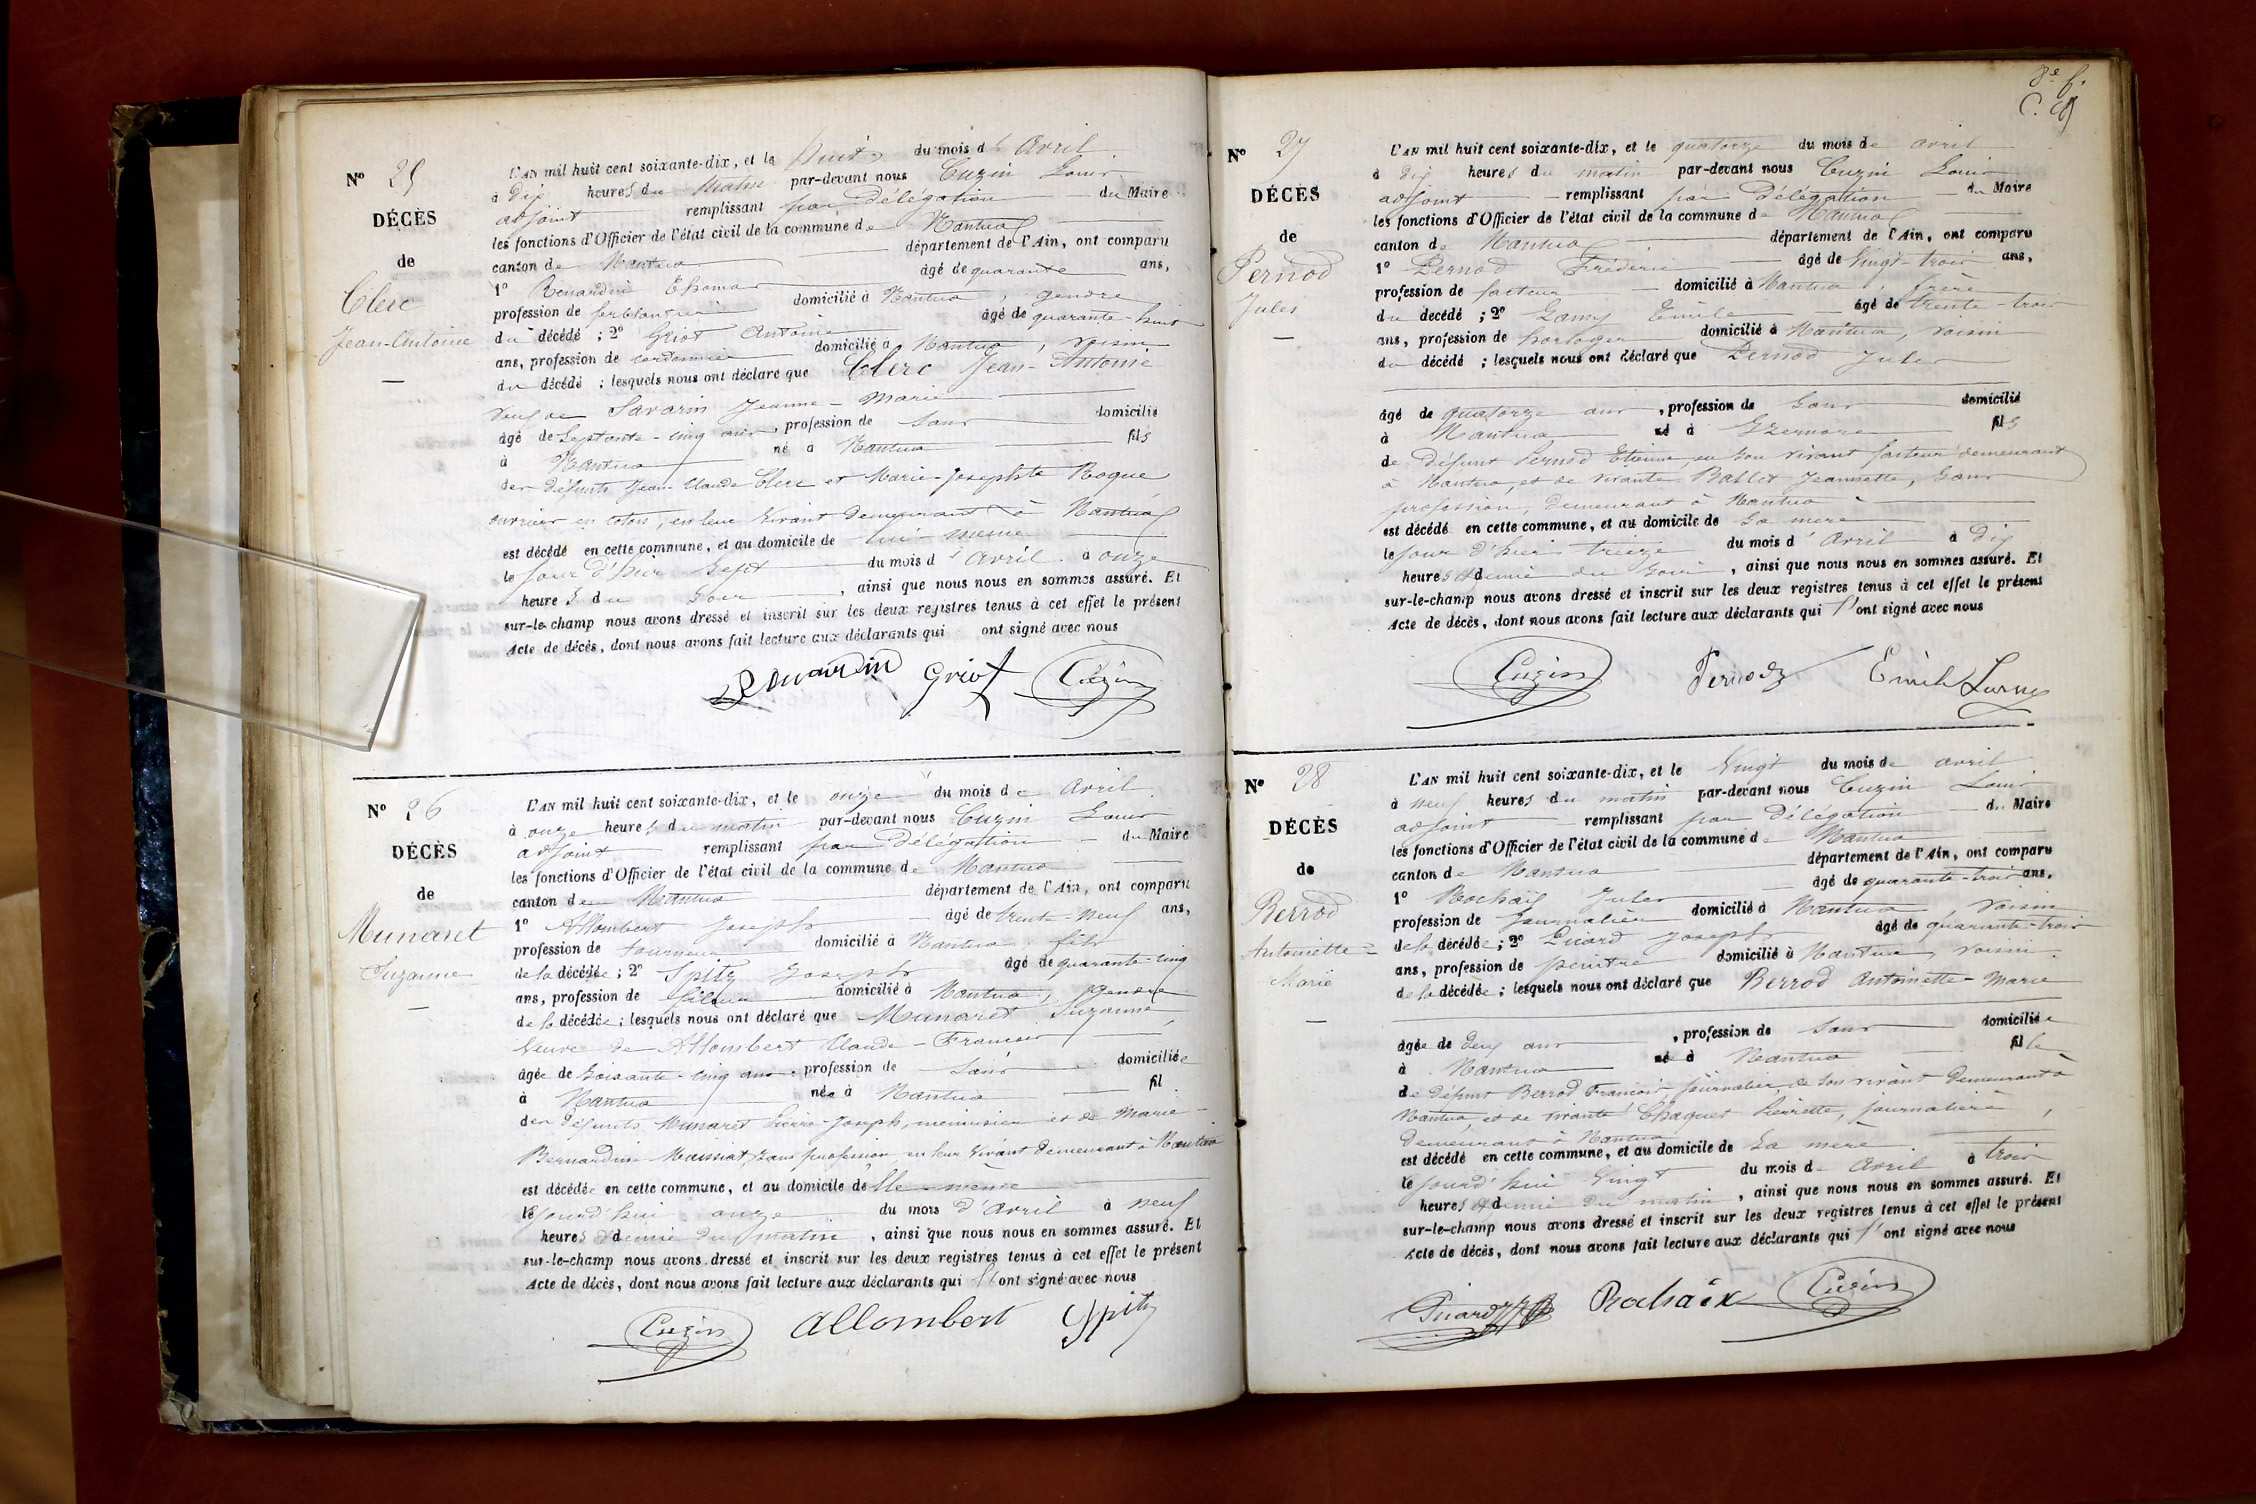 Nº 25
DÉCÈS
de
Clerc
Jean-Antoine
L'AN mil huit cent soixante-dix, et le huit du mois d'Avril
à dix heures du matin par-devant nous Cuzin Louis
adjoint remplissant par Délégation du Maire
les fonctions d'Officier de l'état civil de la commune de Nantua
canton de Nantua département de l'Ain, ont comparu
1º Renardin Thomas âgé de quarante ans,
profession de ferblantier domicilié à Nantua, gendre
du décédé ; 2º Griot Antoine âgé de quarante-huit
ans, profession de cordonnier domicilié à Nantua, voisin
du décédé ; lesquels nous ont déclaré que Clerc Jean-Antoine
veuf de Savarin Jeanne-Marie
âgé de Septante-cinq ans, profession de Sans domicilié
à Nantua né à Nantua fils
des défunts Jean-Claude Clerc et Marie-Josephte Roque
ouvrier en coton, en leur vivant demeurant à Nantua
est décédé en cette commune, et au domicile de lui-même
le jour d'hier sept du mois d'avril à onze
heures du soir, ainsi que nous nous en sommes assuré. Et
sur-le-champ nous avons dressé et inscrit sur les deux registres tenus à cet effet le présent
Acte de décès, dont nous avons fait lecture aux déclarants qui ont signé avec nous
Renardin Griot Cuzin
Nº 26
DÉCÈS
de
Munaret
Suzanne
L'AN mil huit cent soixante-dix, et le onze du mois de Avril
à onze heures du matin par-devant nous Cuzin Louis
adjoint remplissant par Délégation du Maire
les fonctions d'Officier de l'état civil de la commune de Nantua
canton de Nantua département de l'Ain, ont comparu
1º Allombert Joseph âgé de trente-neuf ans,
profession de tourneur domicilié à Nantua, fils
de la décédée ; 2º Spitz Joseph âgé de quarante-cinq
ans, profession de fileur domicilié à Nantua, gendre
de la décédée ; lesquels nous ont déclaré que Munaret Suzanne,
Veuve de Allombert Claude-François
âgée de Soixante-cinq ans, profession de Sans domiciliée
à Nantua née à Nantua fil
des défunts Munaret Pierre-Joseph, menuisier et de Marie-
Bernardine Maissiat sans profession en leur vivant demeurant à Nantua
est décédée en cette commune, et au domicile d'elle-même
le jourd'hui onze du mois d'avril à neuf
heures et demie du matin, ainsi que nous nous en sommes assuré. Et
sur-le-champ nous avons dressé et inscrit sur les deux registres tenus à cet effet le présent
Acte de décès, dont nous avons fait lecture aux déclarants qui l'ont signé avec nous
Cuzin Allombert Spitz
8e f.
Nº 27
DÉCÈS
de
Pernod
Jules
L'AN mil huit cent soixante-dix, et le quatorze du mois de avril
à dix heures du matin par-devant nous Cuzin Louis
adjoint remplissant par Délégation du Maire
les fonctions d'Officier de l'état civil de la commune de Nantua
canton de Nantua département de l'Ain, ont comparu
1º Pernod Frédéric âgé de Vingt-trois ans,
profession de facteur domicilié à Nantua, frère
du décédé ; 2º Lamy Emile âgé de trente-trois
ans, profession de horloger domicilié à Nantua, voisin
du décédé ; lesquels nous ont déclaré que Pernod Jules
âgé de quatorze ans, profession de Sans domicilié
à Nantua né à Izernore fils
de défunt Pernod Etienne, en son vivant facteur demeurant
à Nantua, et de vivante Ballet Jeannette, sans
profession, demeurant à Nantua
est décédé en cette commune, et au domicile de sa mère
le jour d'hier treize du mois d'Avril à dix
heures et demie du soir, ainsi que nous nous en sommes assuré. Et
sur-le-champ nous avons dressé et inscrit sur les deux registres tenus à cet effet le présent
Acte de décès, dont nous avons fait lecture aux déclarants qui l'ont signé avec nous
Cuzin Pernod Emile Lamy
Nº 28
DÉCÈS
de
Berrod
Antoinette=
Marie
L'AN mil huit cent soixante-dix, et le Vingt du mois de avril
à neuf heures du matin par-devant nous Cuzin Louis
adjoint remplissant par Délégation du Maire
les fonctions d'Officier de l'état civil de la commune de Nantua
canton de Nantua département de l'Ain, ont comparu
1º Rochaix Jules âgé de quarante-trois ans,
profession de Journalier domicilié à Nantua voisin
de la décédée ; 2º Picard Joseph âgé de quarante-trois
ans, profession de peintre domicilié à Nantua, voisin
de la décédée ; lesquels nous ont déclaré que Berrod Antoinette-Marie
âgée de deux ans, profession de sans domiciliée
à Nantua né à Nantua fille
de défunt Berrod François, journalier, de son vivant demeurant à
Nantua, et de vivante Chaquet Pierrette, journalière,
demeurant à Nantua
est décédé en cette commune, et au domicile de Sa mère
le jourd'hui Vingt du mois d avril à trois
heures et demie du matin, ainsi que nous nous en sommes assuré. Et
sur-le-champ nous avons dressé et inscrit sur les deux registres tenus à cet effet le présent
Acte de décès, dont nous avons fait lecture aux déclarants qui l'ont signé avec nous
Picard Rochaix Cuzin